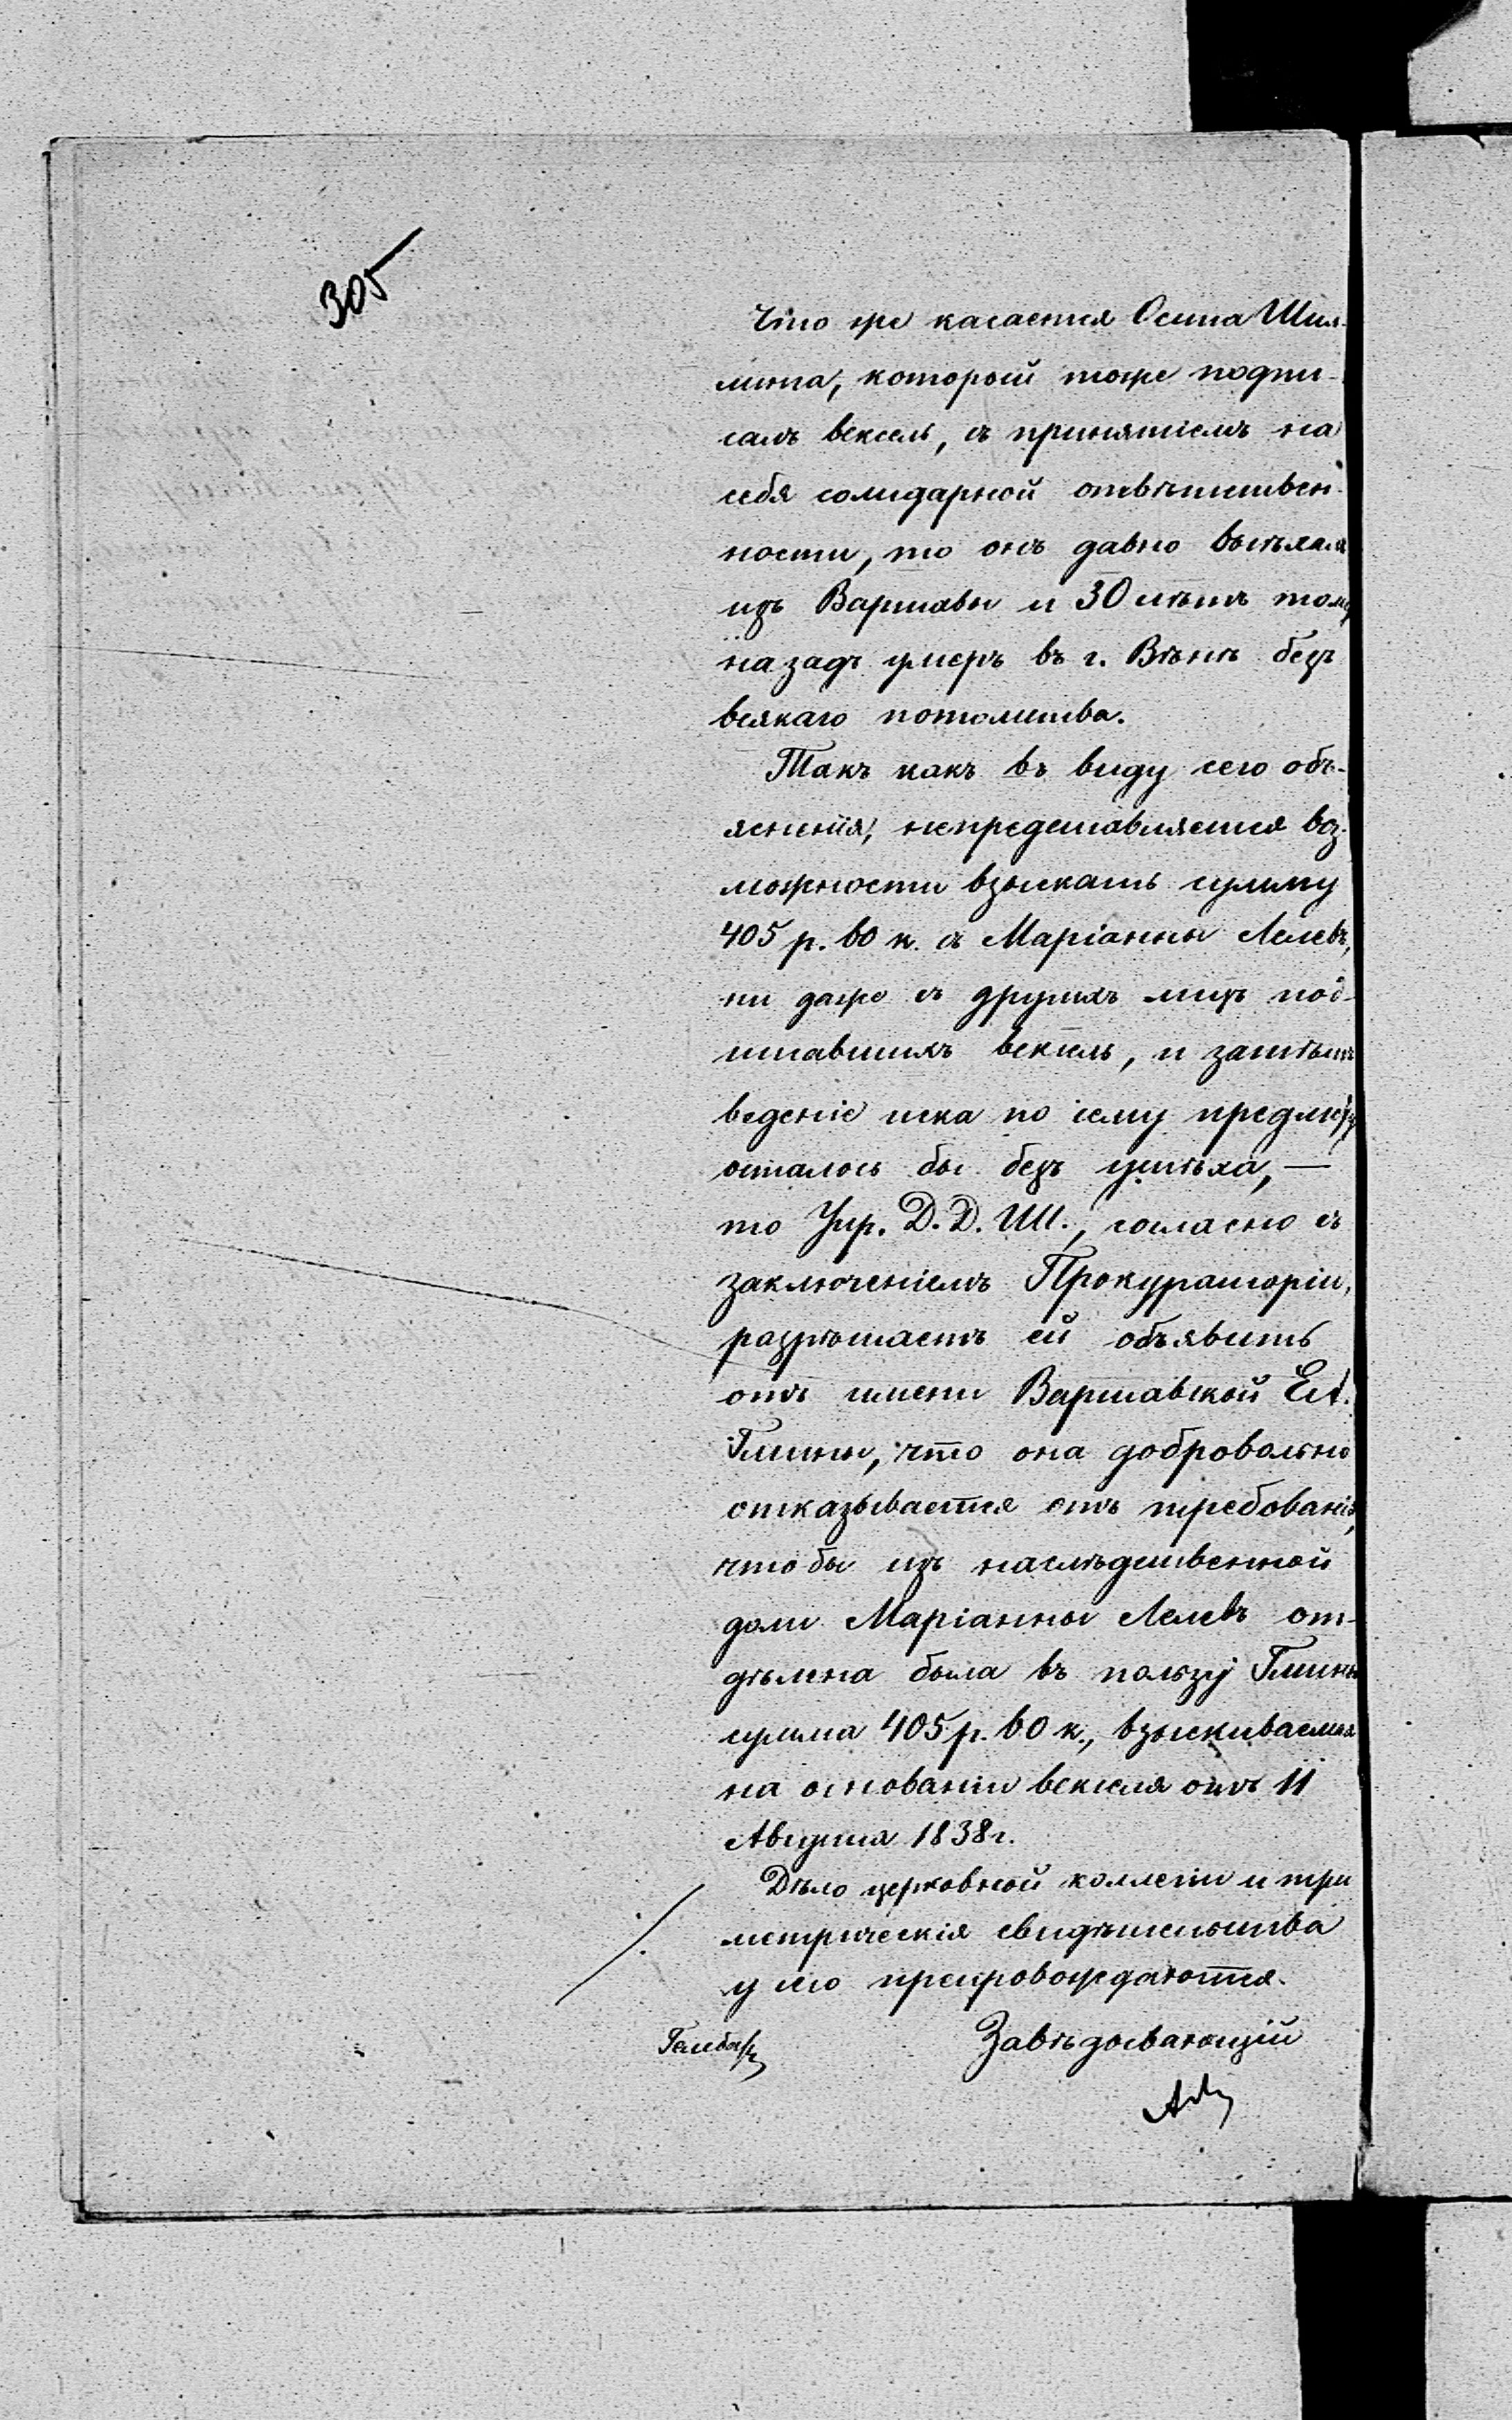 305
Что же касается Осипа Шил-
лина, который тоже подпи-
салъ вексель, съ принятіемъ на
себя солидарной отвѣтствен-
ности, то онъ давно выѣхалъ
изъ Варшавы и 30 лѣтъ тому
назадъ умеръ въ г. Вѣнѣ безъ
всякаго потомства.
Такъ какъ въ виду сего объ-
ясненія, непредставляется воз-
можности взыскать сумму
405 р. 60 к. съ Маріанны Лелевъ,
ни даже съ другихъ лицъ под-
писавшихъ вексель, и затѣмъ
веденіе иска по сему предмету
осталось бы безъ успѣха, —
то Упр. Д. Д. Ш., согласно съ
заключеніемъ Прокураторіи,
разрѣшаетъ ей объявить
отъ имени Варшавской Ев.
Гмины, что она добровольно
отказывается отъ требованія,
чтобы изъ наслѣдственной
доли Маріанны Лелевъ от-
дѣлена была въ пользу Гмины
сумма 405 р. 60 к., взыскиваемая
на основаніи векселя отъ 11
Августа 1838 г.
Дѣло церковной коллегіи и три
метрическія свидѣтельства
у сего препровождаются.
Завѣдывающій